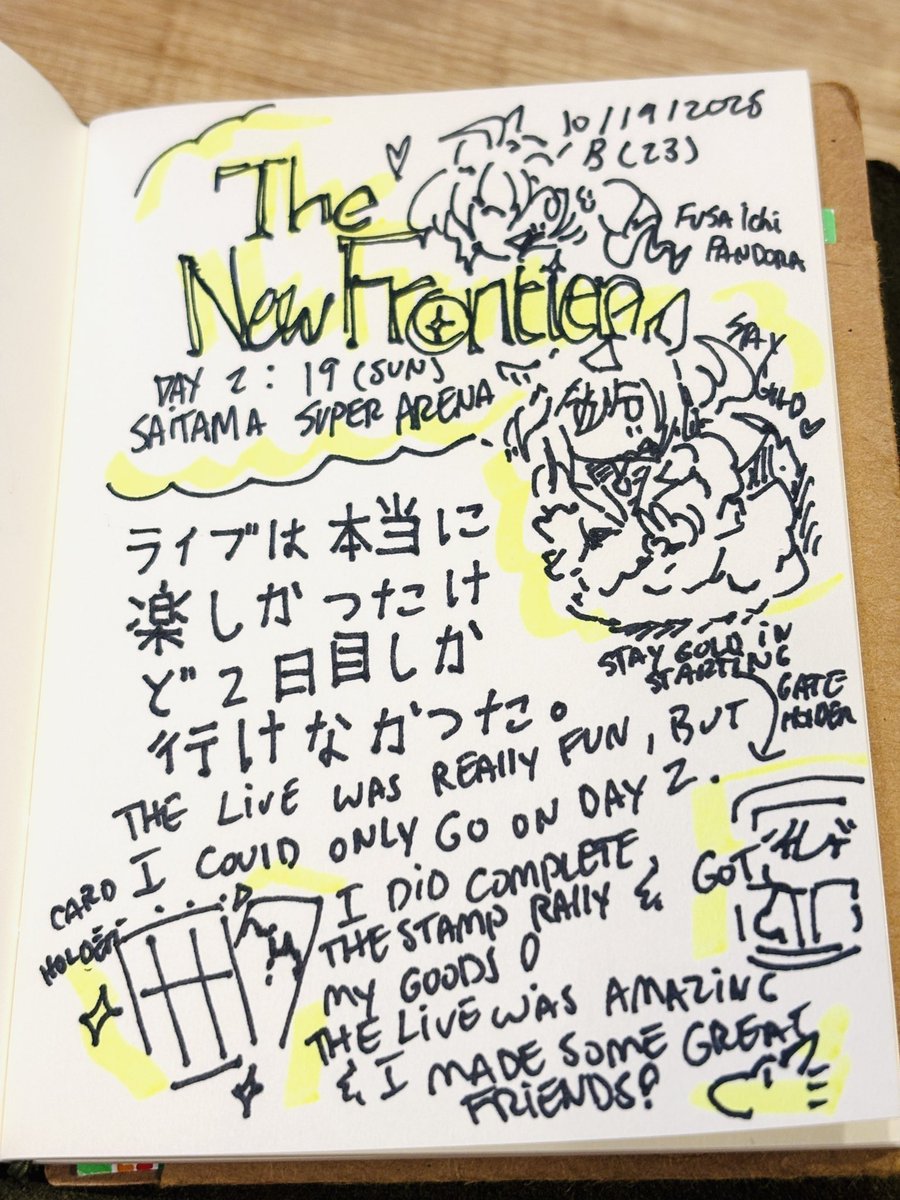 10/19/2025
B(23)
The
FUSAIChi
PANDORA
New Frontier
STAY
GOLD
DAY 2: 19 (SUN)
SAITAMA SUPER ARENA
ライブは本当に
楽しかったけ
ど2日目しか
行けなかった。
STAY GOLD IN
STARTING
GATE
HOLDER
THE LIVE WAS REALLY FUN, BUT
I COULD ONLY GO ON DAY 2.
CARD
HOLDER
I DID COMPLETE
THE STAMP RALLY & GOT
MY GOODS!
THE LIVE WAS AMAZING
& I MADE SOME GREAT
FRIENDS!